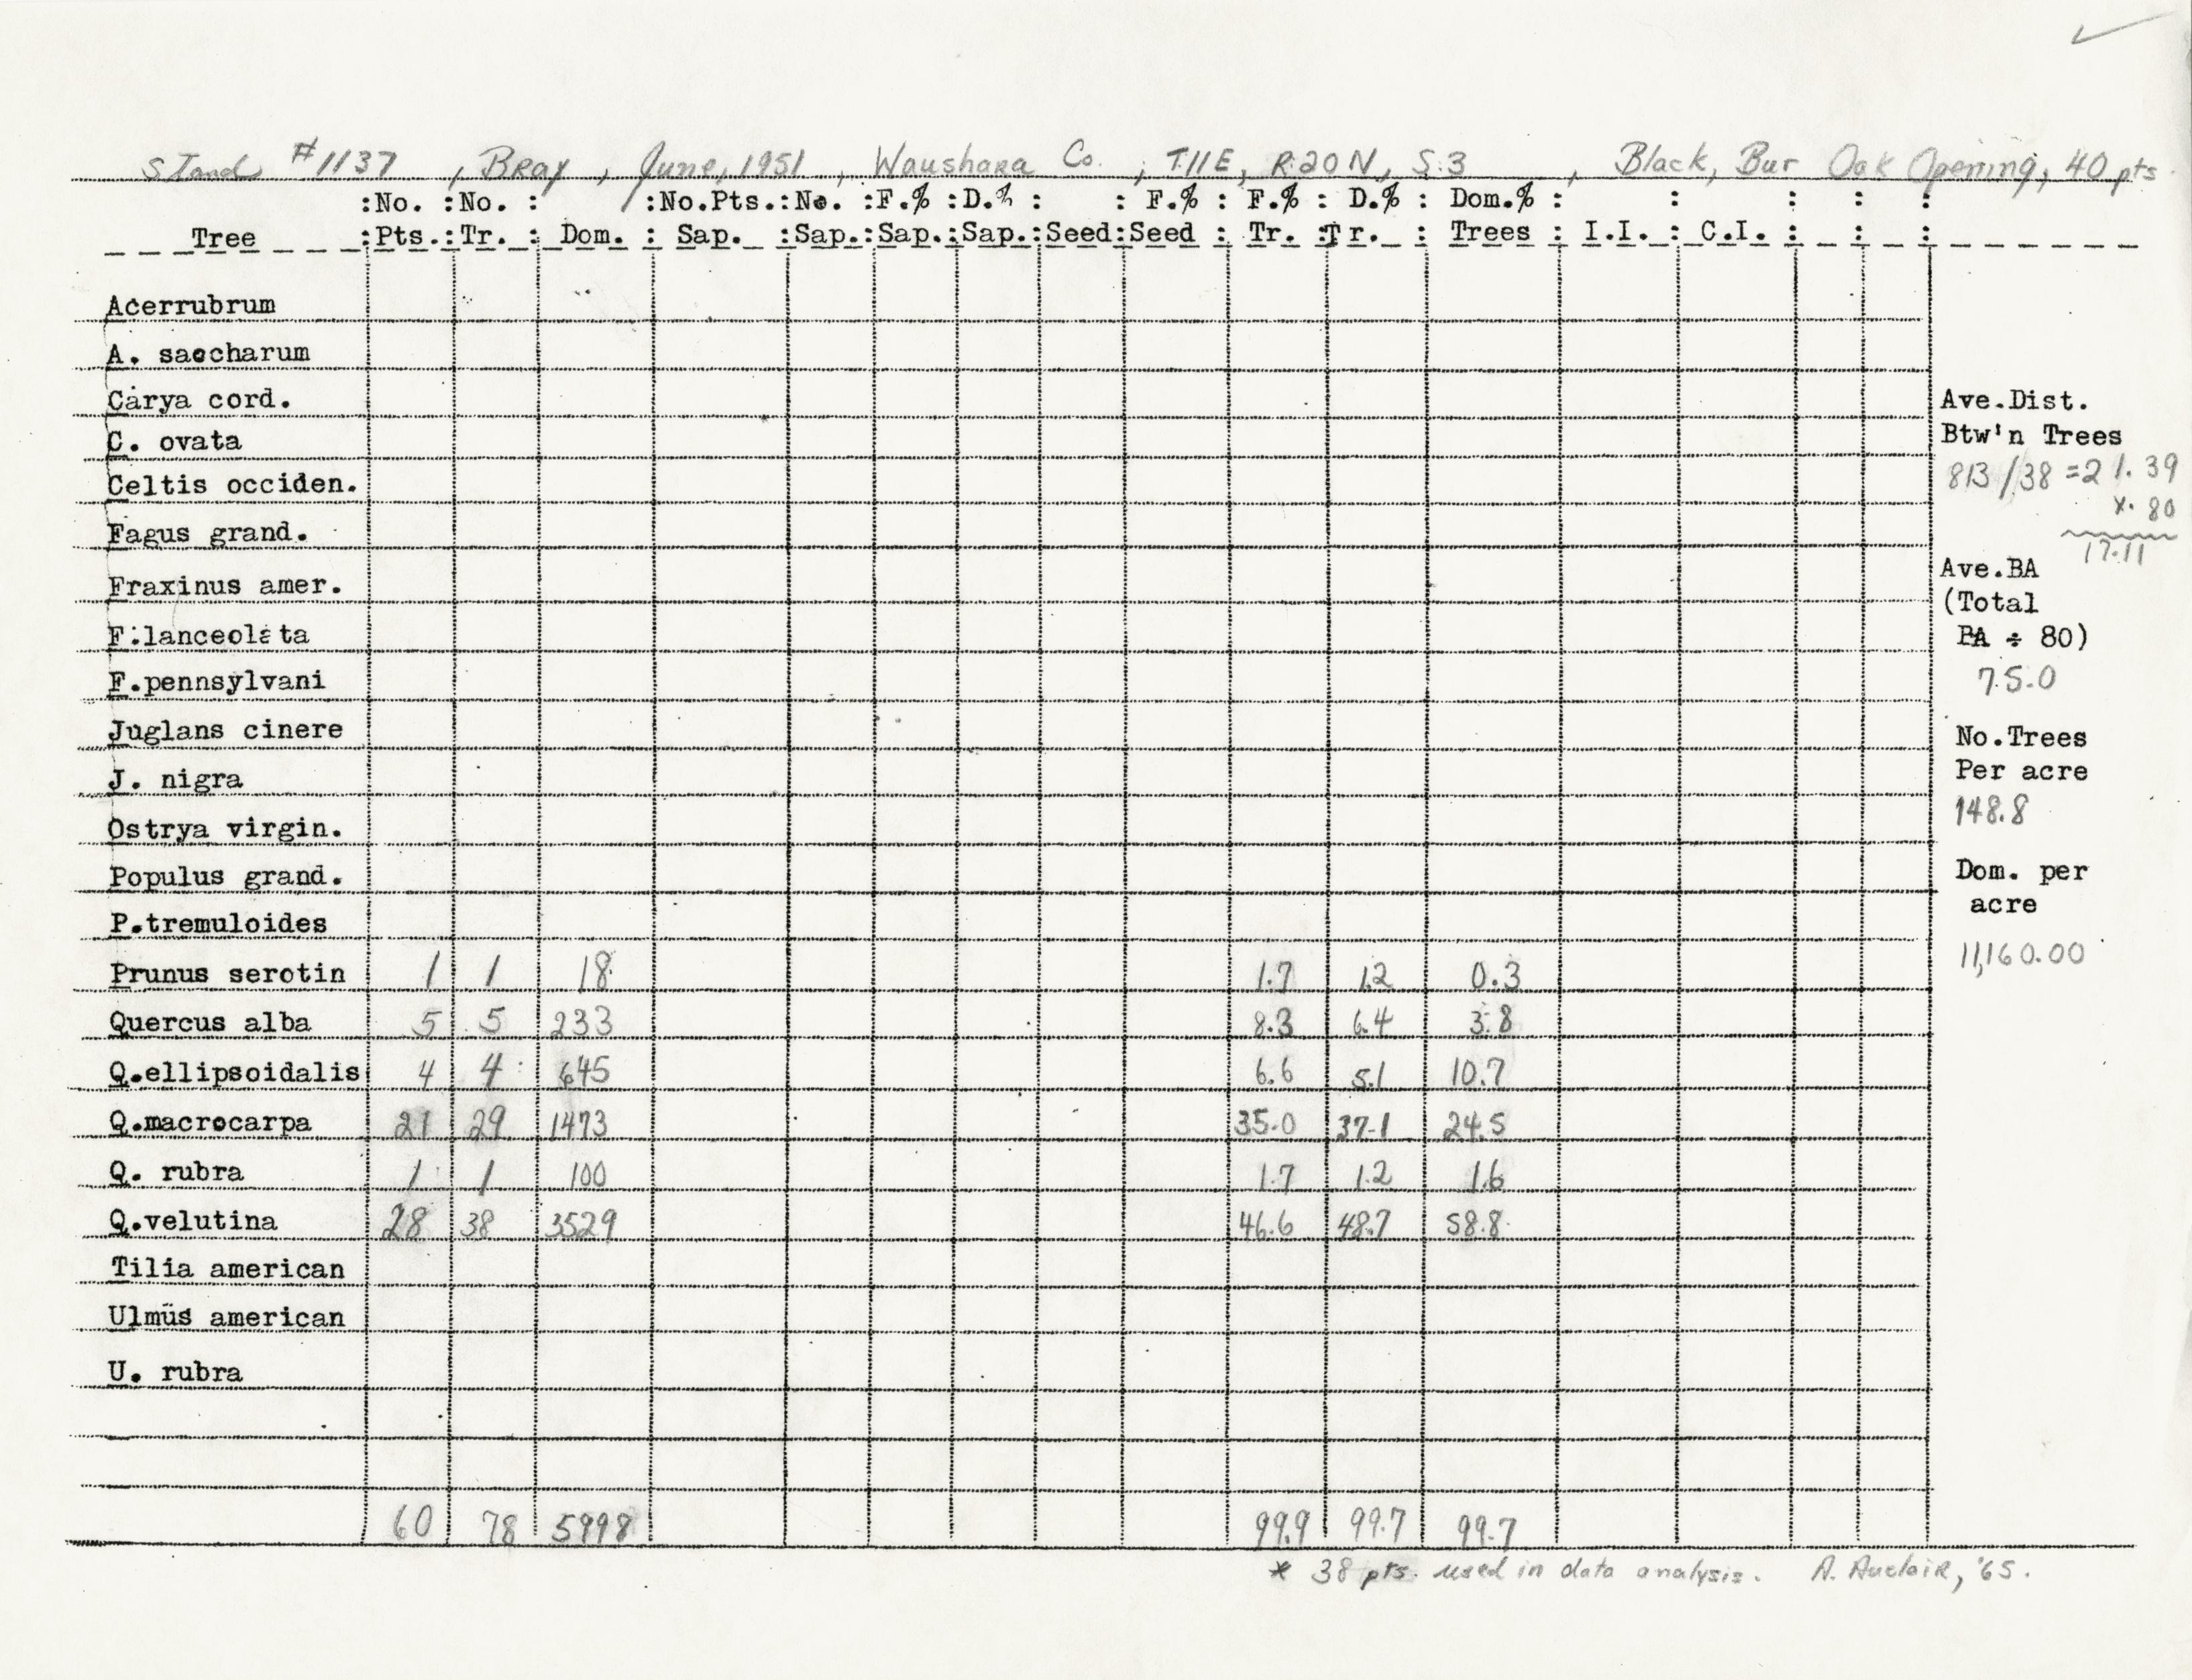 Stand #1137 , Bray , June, 1951 , Waushara Co. , T11E, R20N, S.3 , Black, Bur Oak Opening, 40 pts.
:No. :No. : :No.Pts.:No. :F.% :D.% : : F.% : F.% : D.% : Dom.% : : : : :
Tree :Pts.:Tr. : Dom. : Sap. :Sap.:Sap.:Sap.:Seed:Seed : Tr. :Tr. : Trees : I.I. : C.I. : : :
Acerrubrum
A. saccharum
Carya cord.
C. ovata
Celtis occiden.
Fagus grand.
Fraxinus amer.
F.lanceolata
F.pennsylvani
Juglans cinere
J. nigra
Ostrya virgin.
Populus grand.
P.tremuloides
Prunus serotin 1 1 18 1.7 1.2 0.3
Quercus alba 5 5 233 8.3 6.4 3.8
Q.ellipsoidalis 4 4 645 6.6 5.1 10.7
Q.macrocarpa 21 29 1473 35.0 37.1 24.5
Q. rubra 1 1 100 1.7 1.2 1.6
Q.velutina 28 38 3529 46.6 48.7 58.8
Tilia american
Ulmus american
U. rubra
60 78 5998 99.9 99.7 99.7
* 38 pts. used in data analysis. A. Auclair, '65.
Ave.Dist.
Btw'n Trees
813/38 =21.39
x.80
17.11
Ave.BA
(Total
BA ÷ 80)
75.0
No.Trees
Per acre
148.8
Dom. per
acre
11,160.00